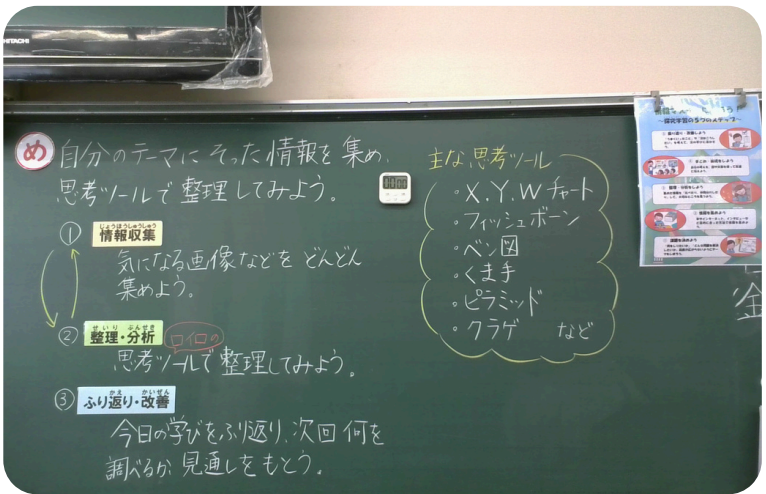 HITACHI
め 自分のテーマにそった情報を集め、
思考ツールで整理してみよう。
① 情報収集
じょうほうしゅうしゅう
気になる画像などをどんどん
集めよう。
② 整理・分析 ロイロの
せいり ぶんせき
思考ツールで整理してみよう。
③ ふり返り・改善
かえ かいぜん
今日の学びをふり返り、次回何を
調べるか見通しをもとう。
主な思考ツール
・X.Y.Wチャート
・フィッシュボーン
・ベン図
・くま手
・ピラミッド
・クラゲ など
～探究学習の5つのステップ～
金